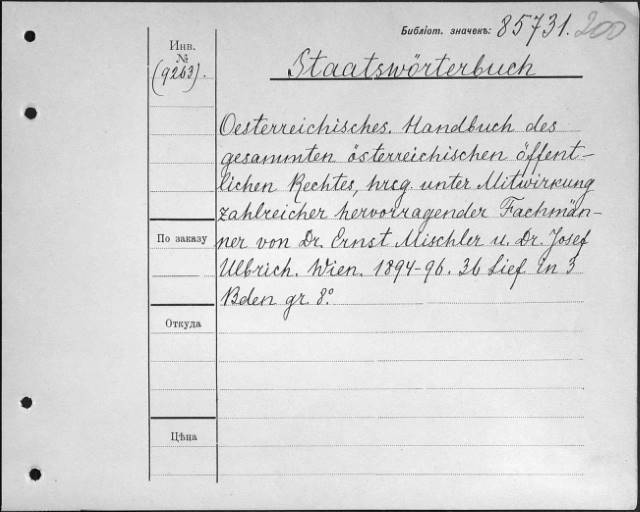 Библіот. значекъ: 85731. 200
Инв.
№
(9263).
Staatswörterbuch
Oesterreichisches. Handbuch des
gesammten österreichischen öffent-
lichen Rechtes, hrcg. unter Mitwirkung
zahlreicher hervorragender Fachmän-
ner von Dr. Ernst Mischler u. Dr. Josef
Ulbrich. Wien. 1894-96. 36 Lief in 3
Bden gr 8°.
По заказу
Откуда
Цѣна